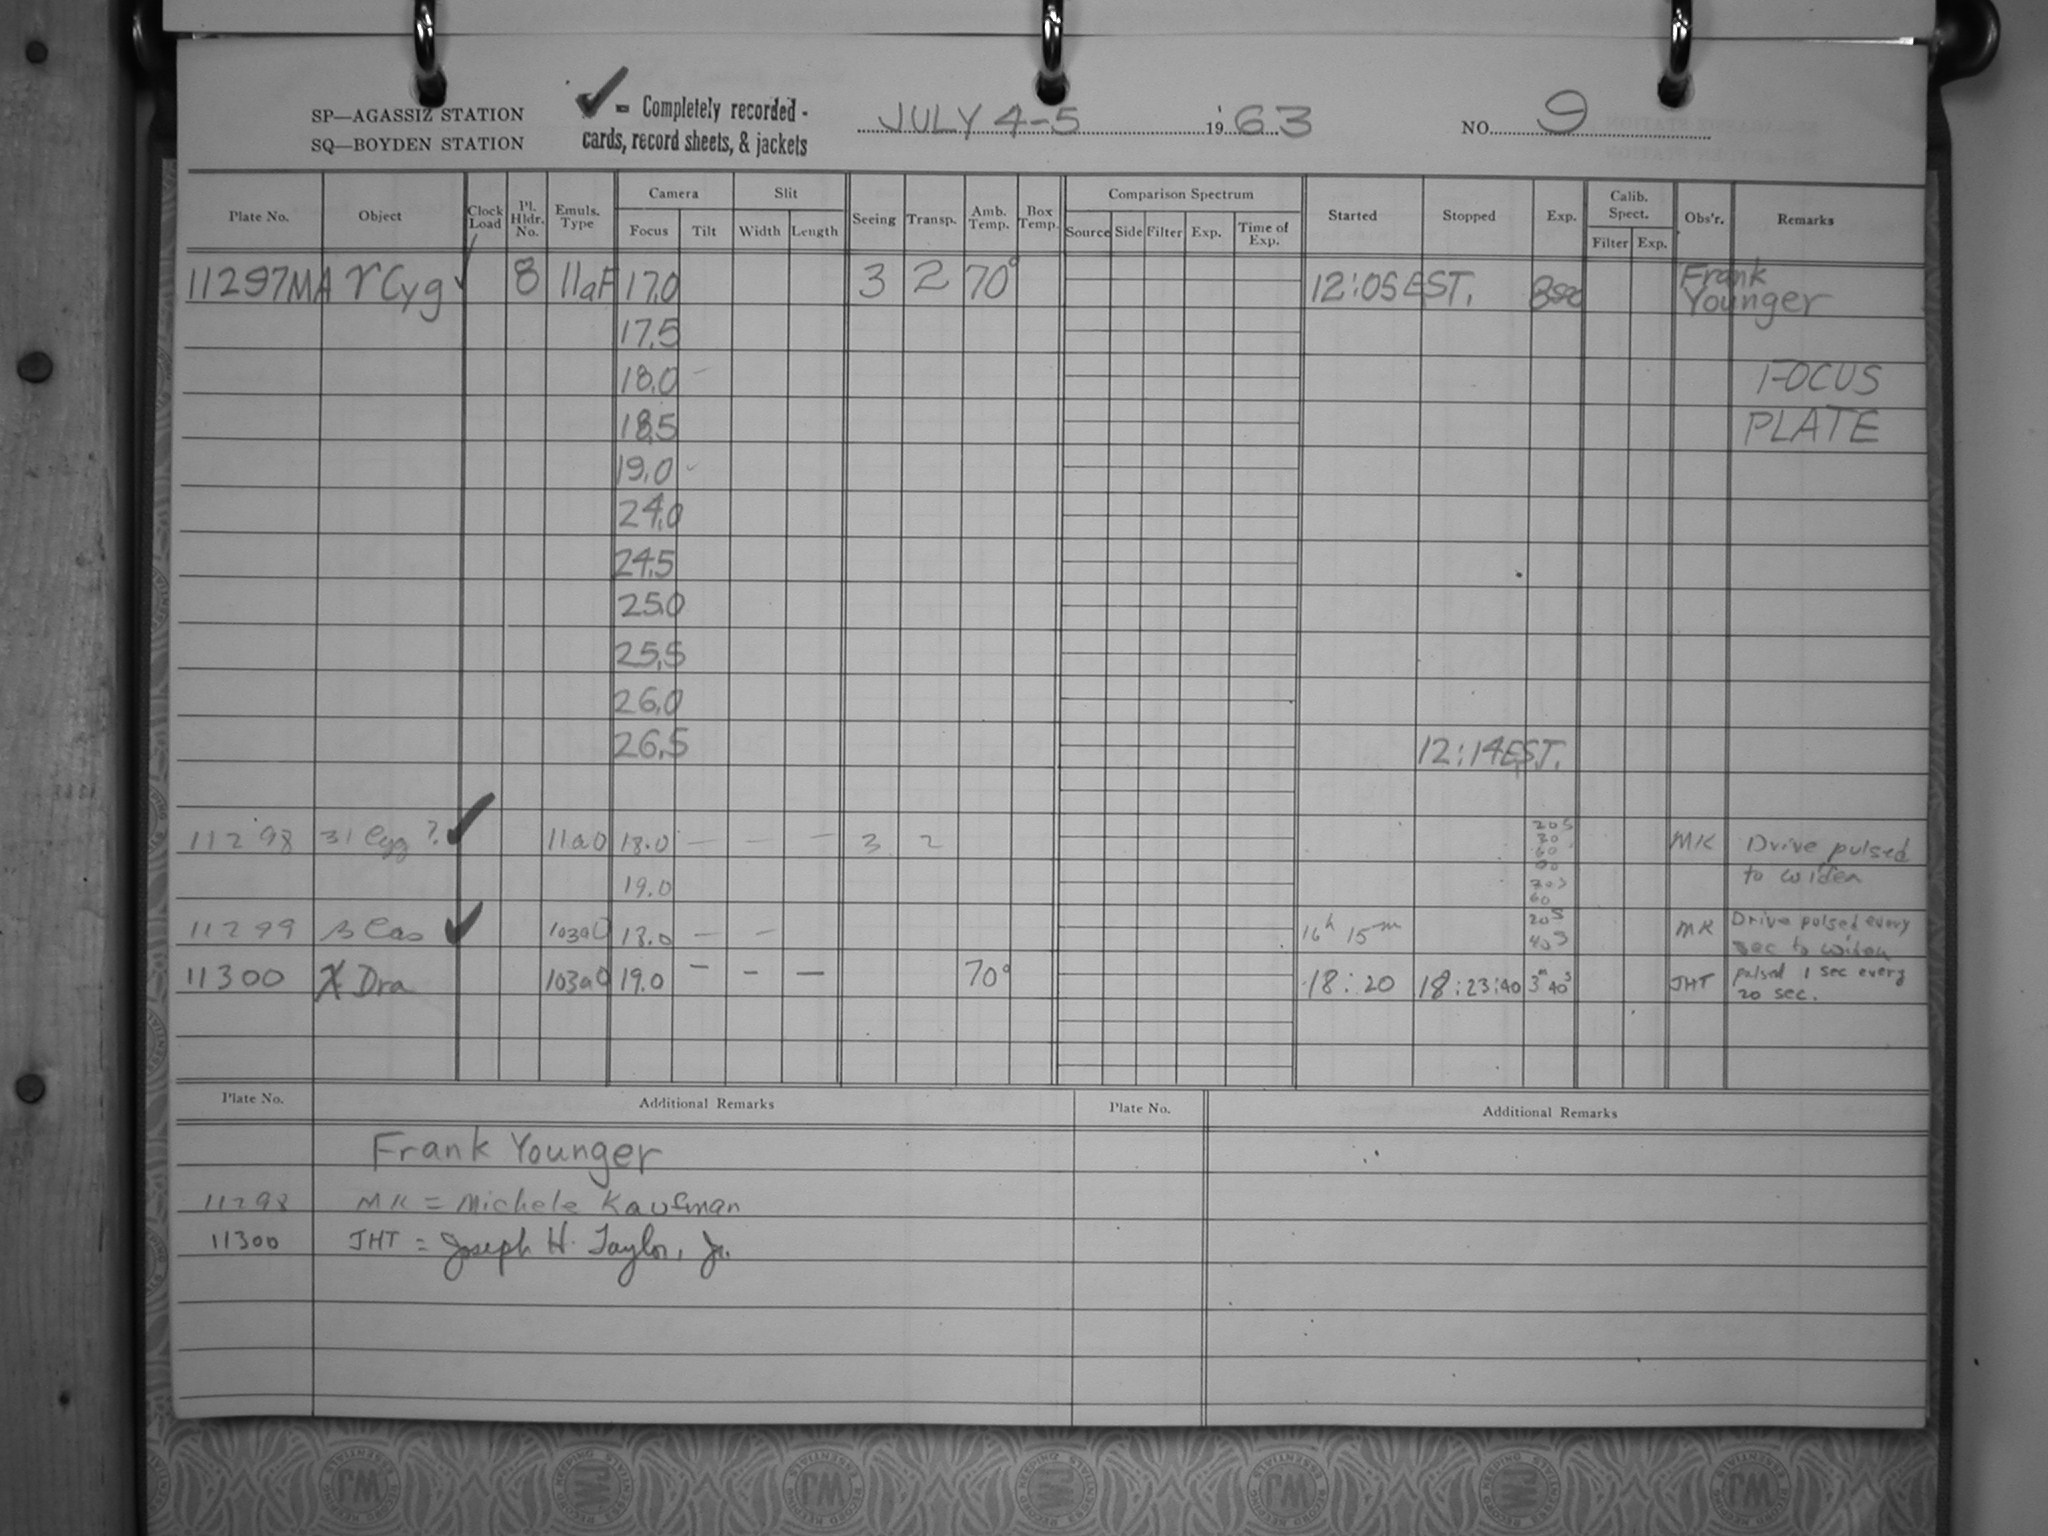 SP—AGASSIZ STATION
SQ—BOYDEN STATION
✓ = Completely recorded -
cards, record sheets, & jackets
JULY 4-5 1963
NO. 9
Plate No. Object Clock Load Pl. Hldr. No. Emuls. Type Camera Focus Tilt Slit Width Length Seeing Transp. Amb. Temp. Box Temp. Comparison Spectrum Source Side Filter Exp. Time of Exp. Started Stopped Exp. Calib. Spect. Filter Exp. Obs'r. Remarks
11297MA γ Cyg ✓ 8 11aF 17.0 3 2 70° 12:05 EST. 8sec Frank Younger
17.5
18.0 - FOCUS
18.5 PLATE
19.0
24.0
24.5
25.0
25.5
26.0
26.5 12:14 EST.
11298 31 Cyg ? ✓ 11a0 18.0 — — — 3 2 20s MK Drive pulsed
19.0 to widen
11299 β Cas ✓ 103a0 18.0 — — 16h 15m 20s 40s MK Drive pulsed every sec to widen
11300 χ Dra 103a0 19.0 - - — 70° 18:20 18:23:40 3m 40s JHT pulsed 1 sec every 20 sec.
Plate No. Additional Remarks Plate No. Additional Remarks
Frank Younger
11298 MK = Michele Kaufman
11300 JHT = Joseph H. Taylor, Jr.